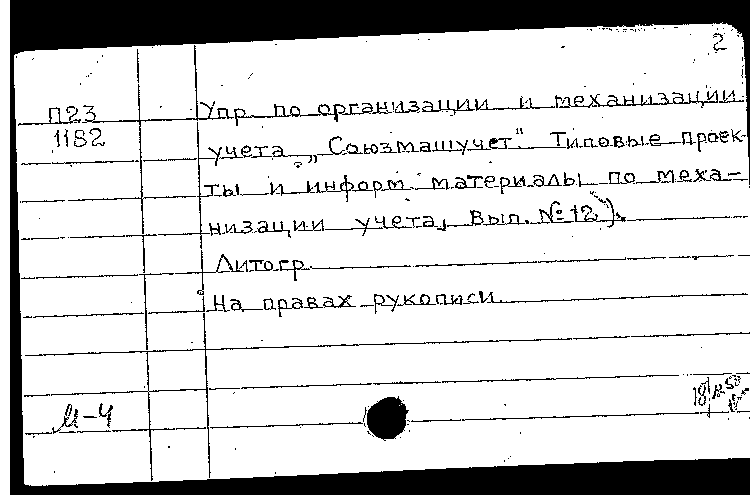 2
П23
1182
Упр. по организации и механизации
учета „Союзмашучет". Типовые проек-
ты и информ. материалы по меха-
низации учета, Вып. № 12).
Литогр.
На правах рукописи.
М-4
18/